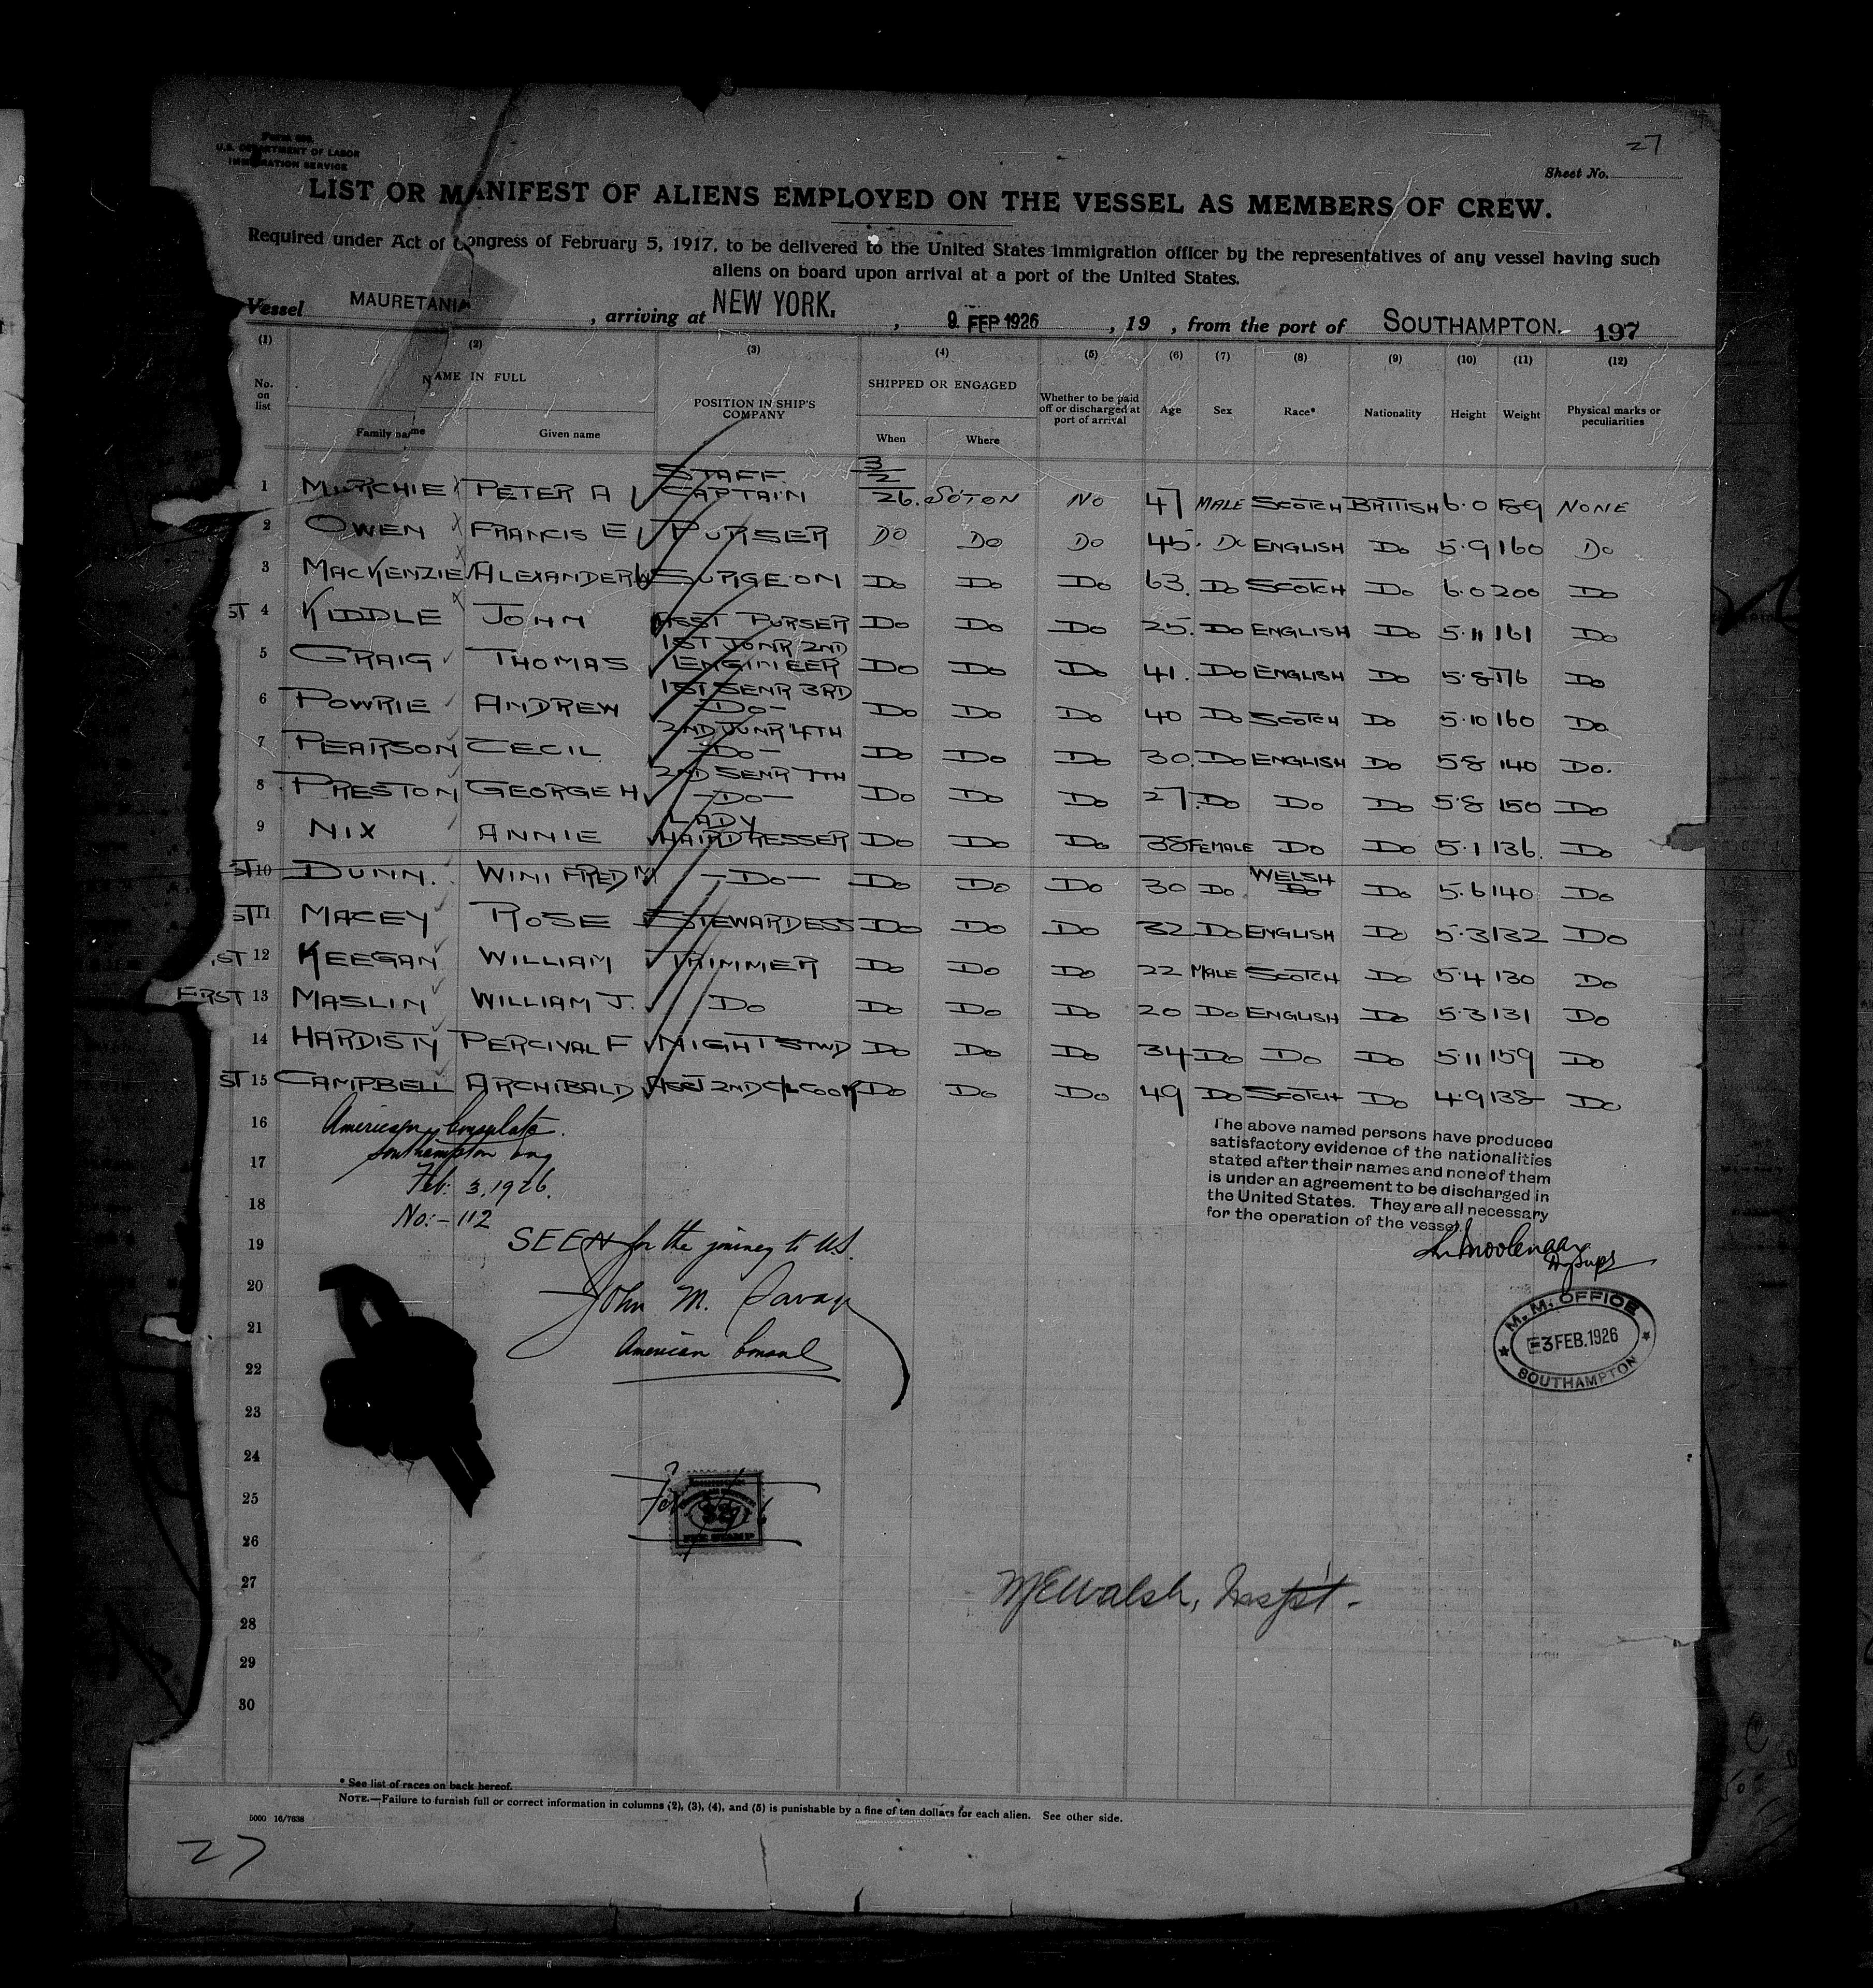 27
Form 689
U.S. DEPARTMENT OF LABOR
IMMIGRATION SERVICE
Sheet No.
LIST OR MANIFEST OF ALIENS EMPLOYED ON THE VESSEL AS MEMBERS OF CREW.
Required under Act of Congress of February 5, 1917, to be delivered to the United States immigration officer by the representatives of any vessel having such
aliens on board upon arrival at a port of the United States.
Vessel MAURETANIA , arriving at NEW YORK. , 9 FEB 1926 , 19 , from the port of SOUTHAMPTON. 197
(1) (2) (3) (4) (5) (6) (7) (8) (9) (10) (11) (12)
No. on list NAME IN FULL Family name Given name POSITION IN SHIP'S COMPANY SHIPPED OR ENGAGED When Where Whether to be paid off or discharged at port of arrival Age Sex Race* Nationality Height Weight Physical marks or peculiarities
1 MURCHIE PETER A STAFF CAPTAIN 3/2 26. S'OTON NO 47 MALE SCOTCH BRITISH 6.0 189 NONE
2 OWEN FRANCIS E PURSER DO DO DO 45. DO ENGLISH DO 5.9 160 DO
3 MACKENZIE ALEXANDER W SURGEON DO DO DO 63. DO SCOTCH DO 6.0 200 DO
ST 4 KIDDLE JOHN ASST PURSER DO DO DO 25. DO ENGLISH DO 5.11 161 DO
5 GRAIG THOMAS 1ST JUNR 2ND ENGINEER DO DO DO 41. DO ENGLISH DO 5.8 176 DO
6 POWRIE ANDREW 1ST SENR 3RD -DO- DO DO DO 40 DO SCOTCH DO 5.10 160 DO
7 PEARSON CECIL 2ND JUNR 4TH -DO- DO DO DO 30. DO ENGLISH DO 5 8 140 DO.
8 PRESTON GEORGE H 2ND SENR 7TH -DO- DO DO DO 27. DO DO DO 5.8 150 DO
9 NIX ANNIE LADY HAIRDRESSER DO DO DO 38 FEMALE DO DO 5.1 136. DO
ST 10 DUNN. WINIFRED M -DO- DO DO DO 30 DO WELSH DO DO 5.6 140 DO
ST 11 MACEY ROSE STEWARDESS DO DO DO 32 DO ENGLISH DO 5.3 132 DO
ST 12 KEEGAN WILLIAM TRIMMER DO DO DO 22 MALE SCOTCH DO 5.4 130 DO
FIRST 13 MASLIN WILLIAM J. DO DO DO DO 20 DO ENGLISH DO 5.3 131 DO
14 HARDISTY PERCIVAL F NIGHT STWD DO DO DO 34 DO DO DO 5.11 159 DO
ST 15 CAMPBELL ARCHIBALD ASST 2ND CL COOK DO DO DO 49 DO SCOTCH DO 4.9 138 DO
16
17
18
19
20
21
22
23
24
25
26
27
28
29
30
American Consulate.
Southampton Eng
Feb. 3, 1926.
No:- 112
SEEN for the journey to U.S.
John M. Savage
American Consul
The above named persons have produced
satisfactory evidence of the nationalities
stated after their names and none of them
is under an agreement to be discharged in
the United States. They are all necessary
for the operation of the vessel.
M. M. OFFICE
3 FEB. 1926
SOUTHAMPTON
FEE STAMP
McWalsh, Inspt.
* See list of races on back hereof.
NOTE.—Failure to furnish full or correct information in columns (2), (3), (4), and (5) is punishable by a fine of ten dollars for each alien. See other side.
5000 16/7638
27